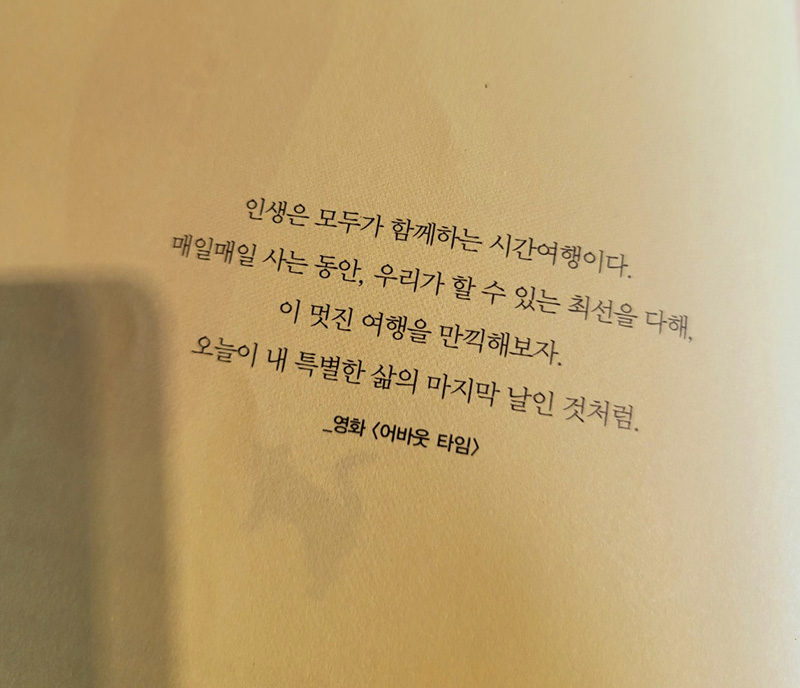 인생은 모두가 함께하는 시간여행이다.
매일매일 사는 동안, 우리가 할 수 있는 최선을 다해,
이 멋진 여행을 만끽해보자.
오늘이 내 특별한 삶의 마지막 날인 것처럼.
_영화 〈어바웃 타임〉